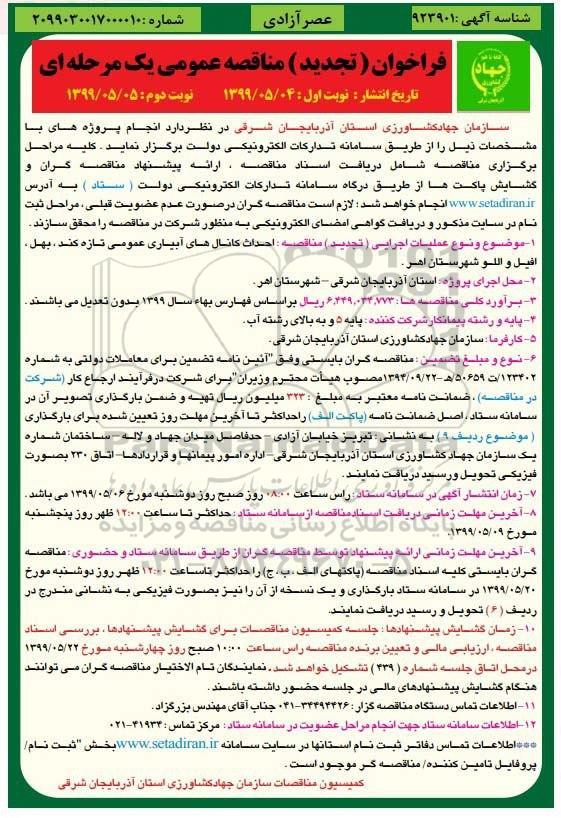 شناسه آگهی : ۹۲۳۹۰۱
عصرآزادی
شماره : ۲۰۹۹۰۳۰۰۱۷۰۰۰۰۱۰
فراخوان ( تجدید ) مناقصه عمومی یک مرحله ای
تاریخ انتشار : نوبت اول : ۱۳۹۹/۰۵/۰۴ نوبت دوم : ۱۳۹۹/۰۵/۰۵
جهاد
سازمان جهادکشاورزی استان آذربایجان شرقی در نظردارد انجام پروژه های با
مشخصات ذیل را از طریق سامانه تدارکات الکترونیکی دولت برگزار نماید . کلیه مراحل
برگزاری مناقصه شامل دریافت اسناد مناقصه ، ارائه پیشنهاد مناقصه گران و
گشایش پاکت ها از طریق درگاه سامانه تدارکات الکترونیکی دولت ( ستاد ) به آدرس
www.setadiran.ir انجام خواهد شد ؛ لازم است مناقصه گران درصورت عدم عضویت قبلی ، مراحل ثبت
نام در سایت مذکور و دریافت گواهی امضای الکترونیکی به منظور شرکت در مناقصه را محقق سازند .
۱-موضوع ونوع عملیات اجرایی ( تجدید ) مناقصه : احداث کانال های آبیاری عمومی تازه کند ، بهل ،
افیل و اللو شهرستان اهر .
۲- محل اجرای پروژه : استان آذربایجان شرقی – شهرستان اهر .
۳- برآورد کلی مناقصه ها : ۶,۴۴۹,۰۳۴,۷۷۳ ریال براساس فهارس بهاء سال ۱۳۹۹ بدون تعدیل می باشند .
۴- پایه و رشته پیمانکار شرکت کننده : پایه ۵ و به بالای رشته آب .
۵- کارفرما : سازمان جهادکشاورزی استان آذربایجان شرقی .
۶- نوع و مبلغ تضمین : مناقصه گران بایستی وفق "آئین نامه تضمین برای معاملات دولتی به شماره
۱۲۳۴۰۲/ت ۵۰۶۵۹/هـ -۱۳۹۴/۰۹/۲۲مصوب هیأت محترم وزیران"برای شرکت درفرآیند ارجاع کار (شرکت
در مناقصه) ، ضمانت نامه معتبر به مبلغ : ۳۲۳ میلیون ریال تهیه و ضمن بارگذاری تصویر آن در
سامانه ستاد ، اصل ضمانت نامه (پاکت الف) راحداکثر تا آخرین مهلت روز تعیین شده برای بارگذاری
( موضوع ردیف ۹ ) به نشانی : تبریز خیابان آزادی – حدفاصل میدان جهاد و لاله – ساختمان شماره
یک سازمان جهاد کشاورزی استان آذربایجان شرقی– اداره امور پیمانها و قراردادها– اتاق ۲۳۰ بصورت
فیزیکی تحویل ورسید دریافت نمایند .
۷- زمان انتشار آگهی در سامانه ستاد : راس ساعت ۰۸:۰۰ روز صبح روز دوشنبه مورخ ۱۳۹۹/۰۵/۰۶ می باشد .
۸- آخرین مهلت زمانی دریافت اسنادمناقصه ازسامانه ستاد : حداکثر تا ساعت ۱۲:۰۰ ظهر روز پنجشنبه
مورخ ۱۳۹۹/۰۵/۰۹.
۹- آخرین مهلت زمانی ارائه پیشنهاد توسط مناقصه گران از طریق سامانه ستاد و حضوری : مناقصه
گران بایستی کلیه اسناد مناقصه (پاکتهای الف ، ب ، ج) را حداکثر تاساعت ۱۲:۰۰ ظهر روز دوشنبه مورخ
۱۳۹۹/۰۵/۲۰ در سامانه ستاد بارگذاری و یک نسخه از آن را نیز بصورت فیزیکی به نشانی مندرج در
ردیف ( ۶ ) تحویل و رسید دریافت نمایند.
۱۰- زمان گشایش پیشنهادها : جلسه کمیسیون مناقصات برای گشایش پیشنهادها ، بررسی اسناد
مناقصه ، ارزیابی مالی و تعیین برنده مناقصه راس ساعت ۱۰:۰۰ صبح روز چهارشنبه مورخ ۱۳۹۹/۰۵/۲۲
درمحل اتاق جلسه شماره ( ۴۳۹ ) تشکیل خواهد شد . نمایندگان تام الاختیار مناقصه گران می توانند
هنگام گشایش پیشنهادهای مالی در جلسه حضور داشته باشند .
۱۱- اطلاعات تماس دستگاه مناقصه گزار : ۳۴۴۹۴۴۲۶-۰۴۱ جناب آقای مهندس برزگزاد .
۱۲-اطلاعات سامانه ستاد جهت انجام مراحل عضویت در سامانه ستاد : مرکز تماس : ۴۱۹۳۴-۰۲۱
***اطلاعات تماس دفاتر ثبت نام استانها در سایت سامانه www.setadiran.irبخش "ثبت نام/
پروفایل تامین کننده/ مناقصه گر موجود است .
کمیسیون مناقصات سازمان جهادکشاورزی استان آذربایجان شرقی
پایگاه اطلاع رسانی مناقصه و مزایده
۰۲۱-۸۸۳۴۹۶۷۰-۵